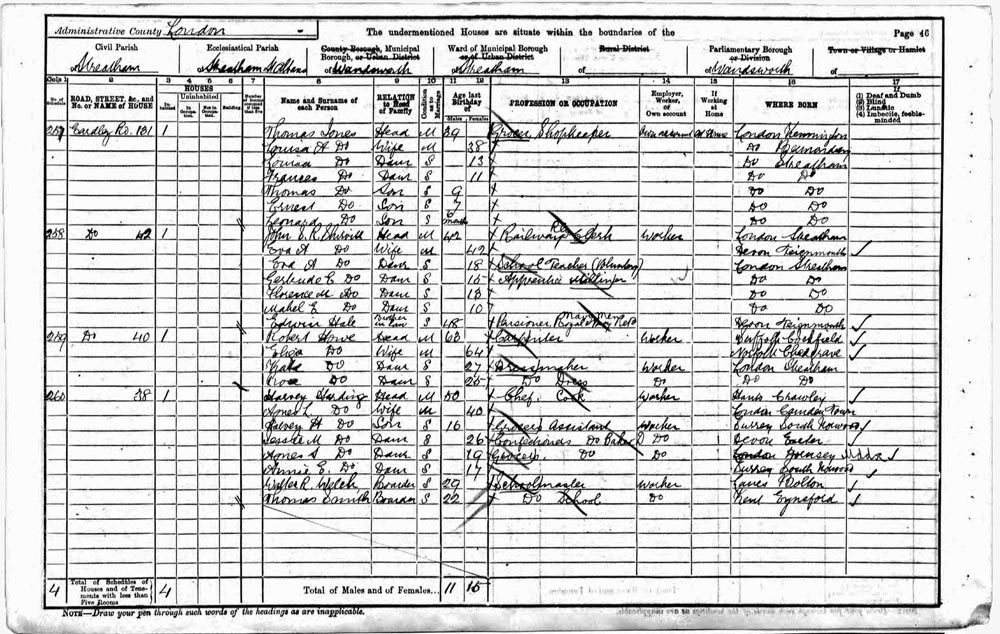 Administrative County London
The undermentioned Houses are situate within the boundaries of the
Page 46
Civil Parish
of Streatham
Ecclesiastical Parish
of Streatham St Albans
County Borough, Municipal Borough, or Urban District
of Wandsworth
Ward of Municipal Borough or of Urban District
of Streatham
Rural District
of
Parliamentary Borough or Division
of Wandsworth
Town or Village or Hamlet
of
Cols. 1 2 3 4 5 6 7 8 9 10 11 12 13 14 15 16 17
No. of Schedule
ROAD, STREET, &c., and No. or NAME of HOUSE
HOUSES
Inhabited
Uninhabited
In Occupation.
Not in Occupation.
Building
Name and Surname of each Person
RELATION to Head of Family
Condition as to Marriage
Age last Birthday of
Males Females
PROFESSION OR OCCUPATION
Employer, Worker, or Own account
If Working at Home
WHERE BORN
If
(1) Deaf and Dumb
(2) Blind
(3) Lunatic
(4) Imbecile, feeble-minded
257 Eardley Rd. 131 1 Thomas Jones Head M 39 Grocer Shopkeeper Own account At Home London Kennington
Louisa A Do Wife M 38 Do Bermondsey
Louisa Do Daur S 13 Do Streatham
Frances Do Daur S 11 Do Do
Thomas Do Son S 9 Do Do
Ernest Do Son S 7 Do Do
Leonard Do Son S 6 mths Do Do
258 Do 42 1 John E. R. Head M 42 Railway Clerk Worker London Streatham
Eva A Do Wife M 42 Devon Teignmouth
Eva A Do Daur S 18 School Teacher (Voluntary) London Streatham
Gertrude E Do Daur S 15 Apprentice Milliner Do Do
Florence M Do Daur S 13 Do Do
Mabel E Do Daur S 10 Do Do
Edwin Hale Brother in law S 48 Pensioner, Royal Navy Devon Teignmouth
259 Do 40 1 Robert Howe Head M 63 Carpenter Worker Suffolk Cockfield
Eliza Do Wife M 64 Norfolk Chedgrave
Kate Do Daur S 27 Dressmaker Worker London Streatham
Rose Do Daur S 25 Do Dress Do Do Do
260 38 1 Harvey Harding Head M 50 Chef Cook Worker Hants Crawley
Agnes L. Do Wife M 40 London Camden Town
Harvey H Do Son S 16 Grocers Assistant Worker Surrey South Norwood
Jessie M Do Daur S 26 Confectioners Do Baker Do Devon Exeter
Agnes S Do Daur S 19 Grocers Do Do London Hornsey
Annie E. Do Daur S 17 Surrey South Norwood
Walter R. Welch Boarder S 29 Schoolmaster Worker Lancs Bolton
Thomas Smith Boarder S 22 Do School Do Kent Eynsford
4 Total of Schedules of Houses and of Tenements with less than Five Rooms 4 Total of Males and of Females... 11 15
NOTE—Draw your pen through such words of the headings as are inapplicable.